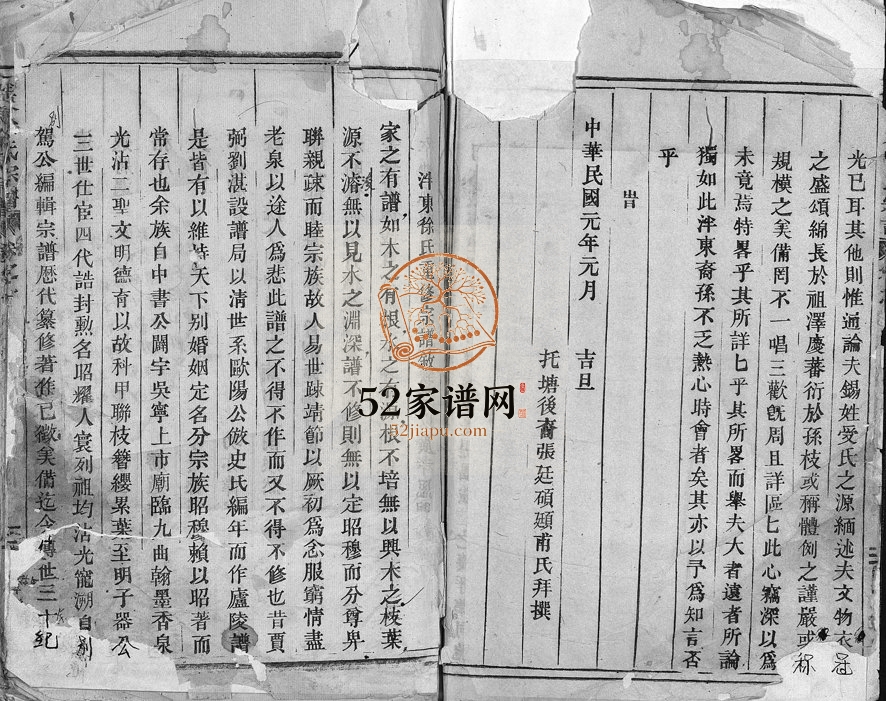 光已耳其他則惟通論夫錫姓受氏之源緬述夫文物衣冠
之盛頌綿長於祖澤慶蕃衍於孫枝或稱體例之謹嚴或稱
規模之美備罔不一唱三歎旣周且詳區匕此心竊深以爲
未竟焉特畧乎其所詳匕乎其所畧而舉夫大者遠者所論
獨如此泮東裔孫不乏熱心時會者矣其亦以予爲知言否
乎
旹
中華民國元年元月 吉旦
托塘後裔張廷碩頲甫氏拜撰
泮東徐氏重修宗譜敘
家之有譜如木之有根水之有源根不培無以興木之枝葉
源不濬無以見水之淵深譜不修則無以定昭穆而分尊卑
聯親疎而睦宗族故人易世踈靖節以厥初爲念服窮情盡
老泉以途人爲悲此譜之不得不作而又不得不修也昔賈
弼劉湛設譜局以清世系歐陽公倣史氏編年而作廬陵譜
是皆有以維持天下别婚姻定名分宗族昭穆賴以昭著而
常存也余族自中書公闢宇吳寧上市廟臨九曲翰墨香泉
光沾二聖文明德育以故科甲聯枝簪纓累葉至明子器公
三世仕宦四代誥封勲名昭耀人寰列祖均沾光寵溯自剡
駕公編輯宗譜歷代纂修著作已徵美備迄今傳世三十紀
52家谱网
52jiapu.com